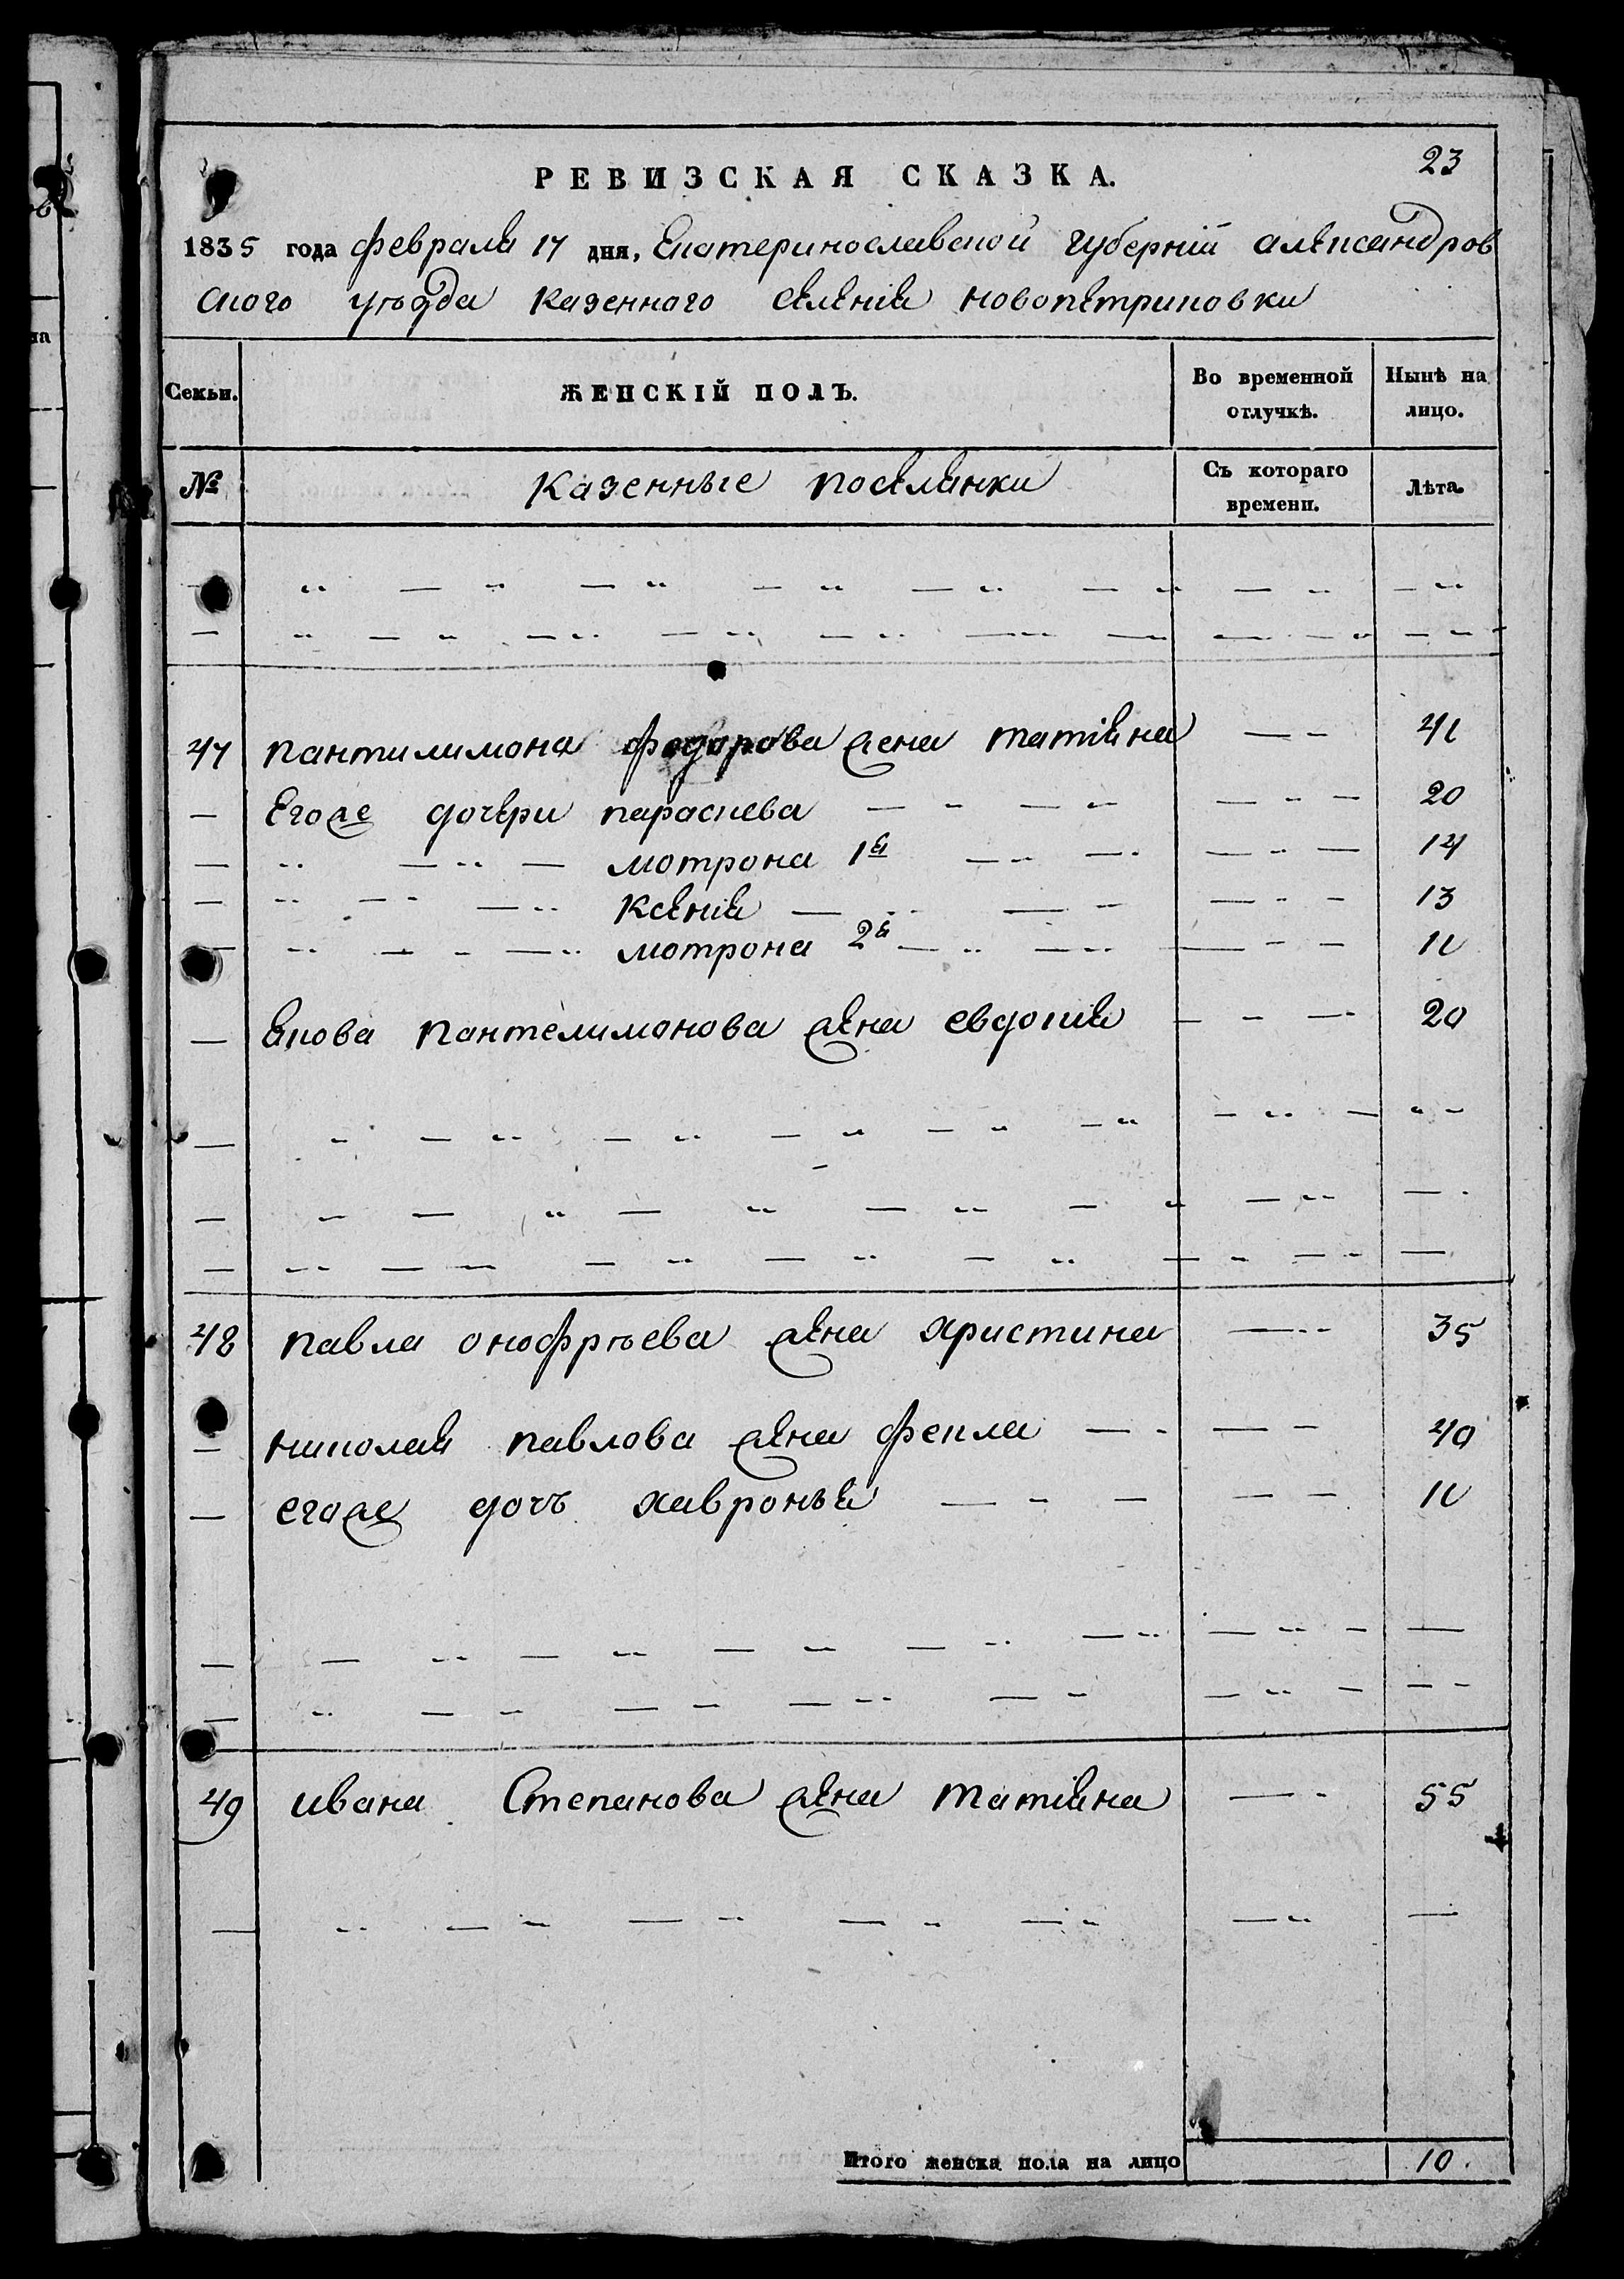 23
РЕВИЗСКАЯ СКАЗКА.
1835 года февраля 17 дня, Екатеринославской губерніи александров
ского уѣзда казенного селенія новопетриковки
Семьи. ЖЕНСКІЙ ПОЛЪ. Во временной отлучкѣ. Нынѣ на лицо.
№ Казенные поселянки Съ котораго времени. Лѣта.
47 пантилимона федорова жена татіяна 41
Егоже дочери параскева 20
мотрона 1я 14
Ксенія 13
мотрона 2я 11
якова пантелимонова жена евдокія 20
48 павла онофрѣева жена христина 35
николая павлова жена фекла 40
егоже дочь хавронья 11
49 ивана Степанова жена татіяна 55
Итого женска пола на лицо 10.